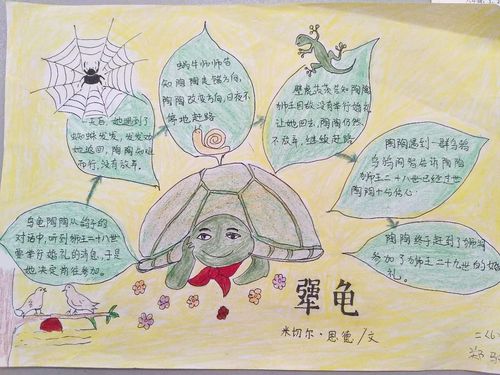 乌龟陶陶从鸽子的
对话中,听到狮王二十八世
要举行婚礼的消息,于是
她决定前往参加。
一天后,她遇到了
蜘蛛发发,发发劝
她返回,陶陶知难
而行,没有放弃。
蜗牛师师告
知陶陶走错方向,
陶陶改变方向,日夜不
停地赶路
壁虎茨茨告知陶陶
狮王因故没有举行婚礼
让她回去,陶陶仍然
不放弃,继续赶路
陶陶遇到一群乌鸦
乌鸦阿智告诉陶陶
狮王二十八世已经过世
陶陶十与信心
陶陶终于赶到了狮洞
参加了狮王二十九世的婚
礼。
犟龟
米切尔·恩德/文
二(6